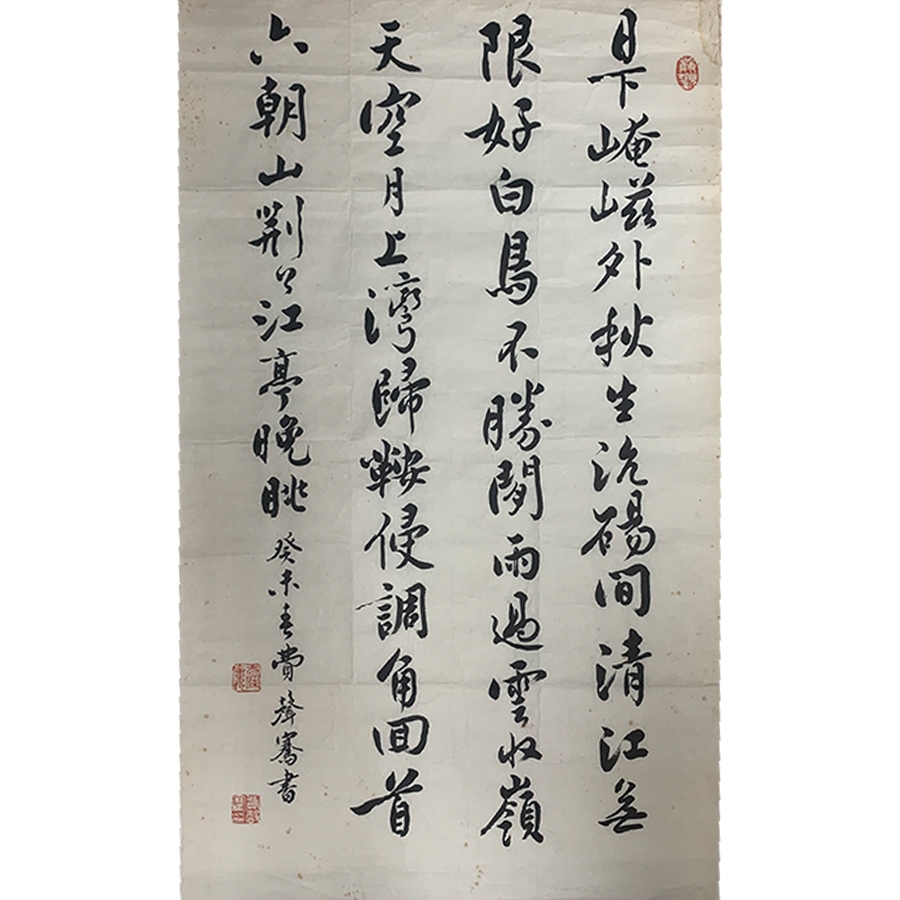 日下崦嵫外秋生沆碭間清江無
限好白鳥不勝閒雨過雲收嶺
天空月上灣歸鞍侵調角回首
六朝山荆公江亭晚眺癸未春費聲騫書